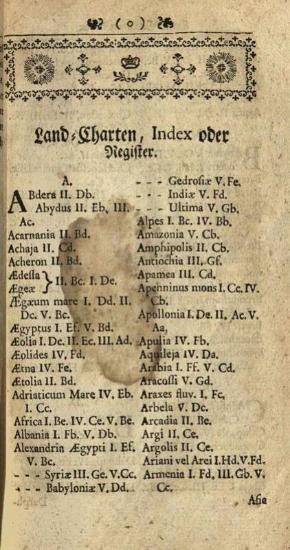 ( 0 )
Land-Charten, Index oder
Register.
A.
ABdera II. Db.
Abydus II. Eb, III.
Ac.
Acarnania II. Bd.
Achaja II. Cd.
Acheron II. Bd.
Ædessa
Ægeæ } II. Bc. I. De.
Ægæum mare I. Dd. II.
Dc. V. Bc.
Ægyptus I. Ef. V. Bd.
Æolia I. De. II. Ec. III. Ad,
Æolides IV, Fd,
Ætna IV. Fe.
Ætolia II. Bd.
Adriaticum Mare IV, Eb.
I. Cc.
Africa I. Be. IV. Ce. V. Be.
Albania I. Fb. V. Db.
Alexandria Ægypti I. Ef.
V. Bc.
- - - Syriæ III. Ge. V. Cc.
- - - Babyloniæ V. Dd.
- - - Gedrosiæ V. Fe,
- - - Indiæ V. Fd.
- - - Ultima V. Gb.
Alpes I. Bc. IV. Bb.
Amazonia V. Cb.
Amphipolis II. Cb.
Antiochia III. Gf.
Apamea III. Cd.
Apenninus mons I. Cc. IV.
Cb.
Apollonia I. De. II, Ac. V.
Aa,
Apulia IV. Fb.
Aquileja IV. Da.
Arabia I. Ff. V. Cd.
Aracossi V. Gd.
Araxes fluv. I. Fc,
Arbela V. Dc.
Arcadia II. Be.
Argi II, Ce,
Argolis II. Ce.
Ariani vel Arei I. Hd. V. Fd.
Armenia I. Fd, III. Gb. V.
Cc.
Asia